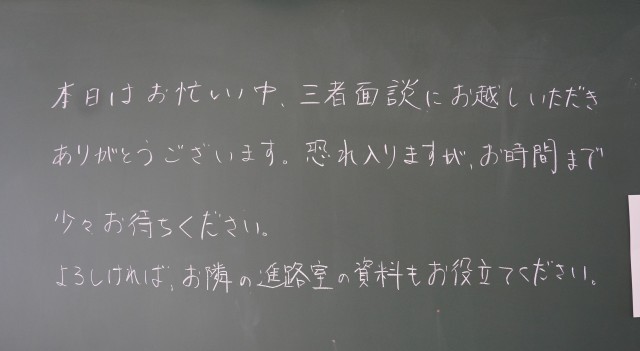 本日はお忙しい中、三者面談にお越しいただき
ありがとうございます。恐れ入りますが、お時間まで
少々お待ちください。
よろしければ、お隣の進路室の資料もお役立てください。